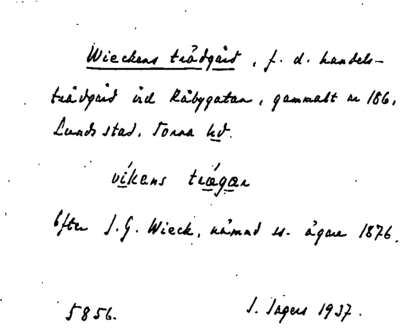 Wieckens trädgård, f. d. handels-
trädgård vid Råbygatan, gammalt nr 186,
Lunds stad, Torna hd.
víkens trǽgan
Efter J. G. Wieck, nämnd ss. ägare 1876.
5856.
J. Ingers 1937.